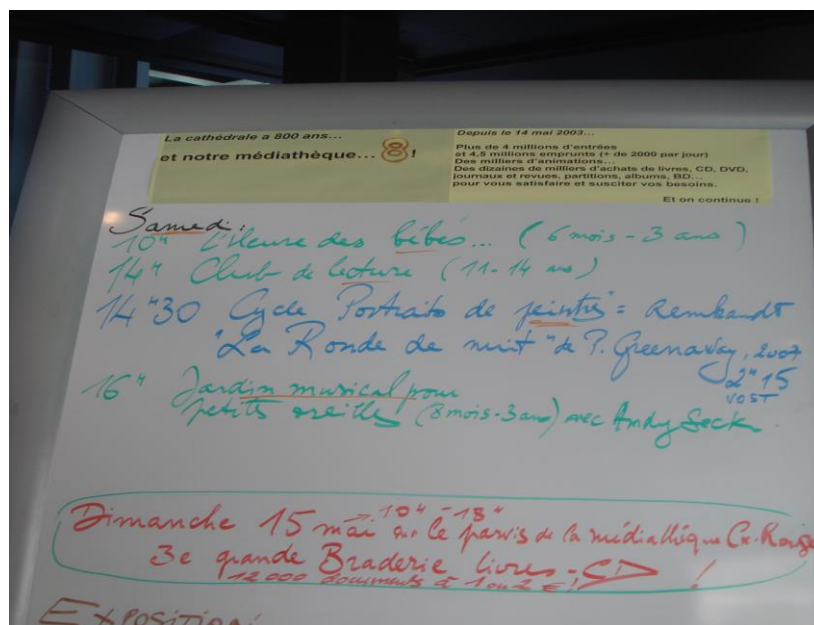 La cathédrale a 800 ans...
et notre médiathèque... 8 !
Depuis le 14 mai 2003...
Plus de 4 millions d'entrées
et 4,5 millions emprunts (+ de 2000 par jour)
Des milliers d'animations...
Des dizaines de milliers d'achats de livres, CD, DVD,
journaux et revues, partitions, albums, BD...
pour vous satisfaire et susciter vos besoins.
Et on continue !
Samedi :
10H L'Heure des bébés... (6 mois - 3 ans)
14H Club de lecture (11-14 ans)
14H30 Cycle Portraits de peintres = Rembrandt
"La Ronde de nuit" de P. Greenaway, 2007
2H15
VOST
16H Jardin musical pour
petits oreilles (8 mois-3 ans) avec Andy Seck.
Dimanche 15 mai → 10H - 18H sur le parvis de la médiathèque Cx-Rouge
3e grande Braderie livres - CD !
12 000 documents à 1 ou 2 € !
EXPOSITION: